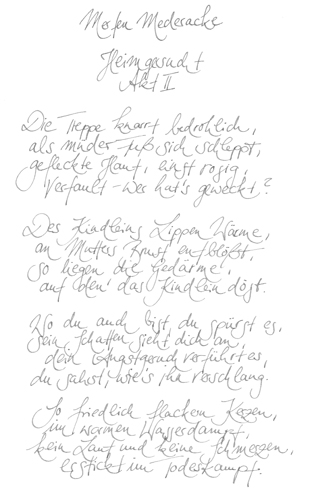 Morten Mederacke
Heimgesucht
Akt II
Die Treppe knarrt bedrohlich,
als müder Fuß sich schleppt,
gefleckte Haut, einst rosig,
verfault - wer hat's geweckt?
Des Kindleins Lippen Wärme,
an Mutters Brust entblößt,
so liegen die Gedärme,
auf den' das Kindlein döst.
Wo du auch bist, du spürst es,
sein Schatten sieht dich an,
dein Angstgeruch verführt es,
du sahst, wie's ihn verschlang.
So friedlich flackern Kerzen,
im warmen Wasserdampf,
kein Laut und keine Schmerzen,
erstickt im Todeskampf.